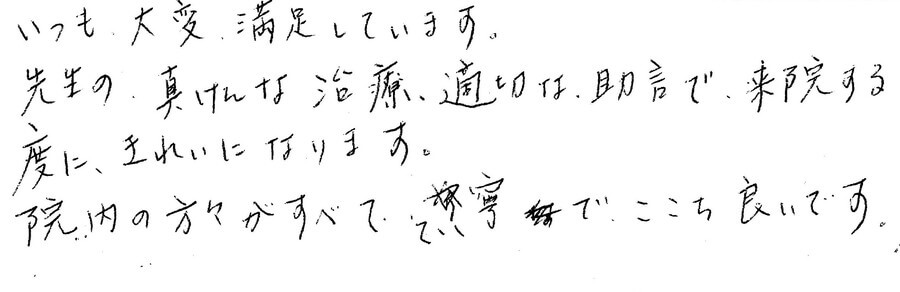 いつも大変満足しています。
先生の真けんな治療、適切な助言で、来院する
度に、きれいになります。
院内の方々がすべててい寧でここち良いです。